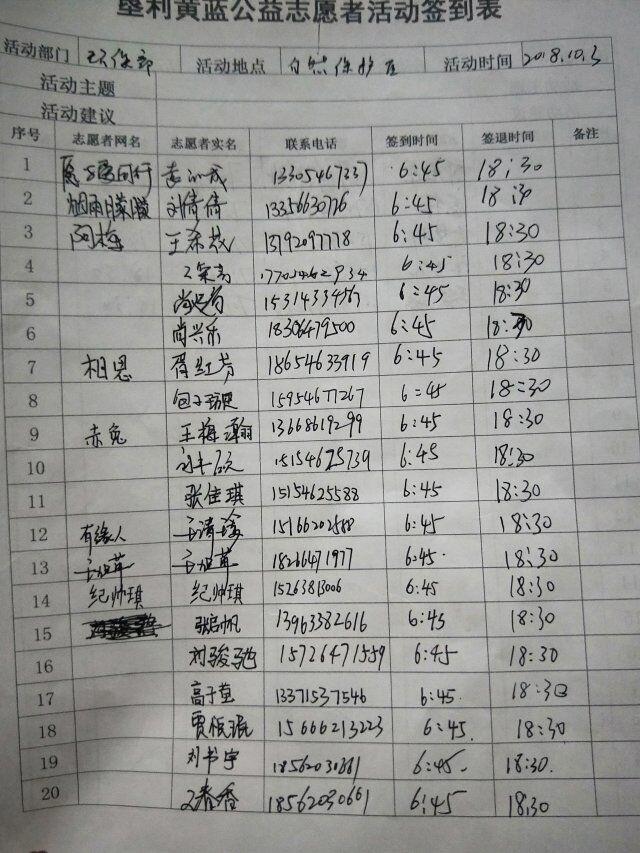 垦利黄蓝公益志愿者活动签到表
活动部门 环保部 活动地点 自然保护区 活动时间 2018.10.3
活动主题
活动建议
序号 志愿者网名 志愿者实名 联系电话 签到时间 签退时间 备注
1 13305467237 6:45 18:30
2 烟雨朦胧 刘倩倩 13356630726 6:45 18:30
3 阿梅 13792097778 6:45 18:30
4 6:45 18:30
5 15314334567 6:45 18:30
6 尚兴乐 18306479500 6:45 18:30
7 相思 18654633919 6:45 18:30
8 15954677267 6:45 18:30
9 赤兔 王梅瀚 13668619299 6:45 18:30
10 15154625739 6:45 18:30
11 张佳琪 15154625588 6:45 18:30
12 有缘人 15166202588 6:45 18:30
13 18266471977 6:45 18:30
14 纪帅琪 纪帅琪 15263813006 6:45 18:30
15 张启帆 13963382616 6:45 18:30
16 刘骏驰 15726471559 6:45 18:30
17 13371537546 6:45 18:30
18 15666213223 6:45 18:30
19 刘书宇 6:45 18:30
20 18562030661 6:45 18:30